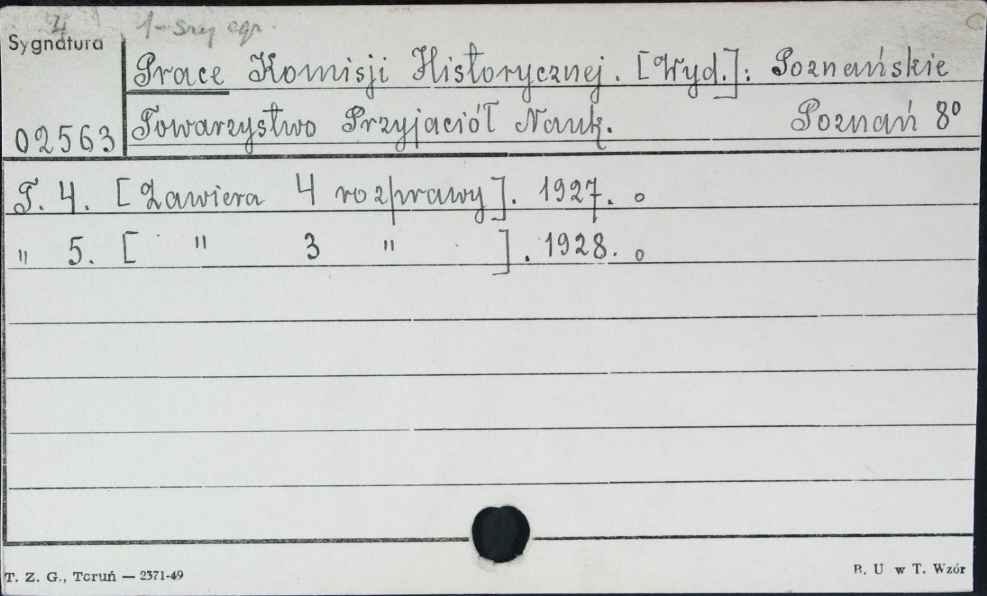 4 1-szy egz.
Sygnatura
Prace Komisji Historycznej. [Wyd.]: Poznańskie
02563 Towarzystwo Przyjaciół Nauk. Poznań 8°
T. 4. [Zawiera 4 rozprawy]. 1927. o
" 5. [ " 3 " ]. 1928. o
T. Z. G., Toruń — 2371-49
B. U w T. Wzór